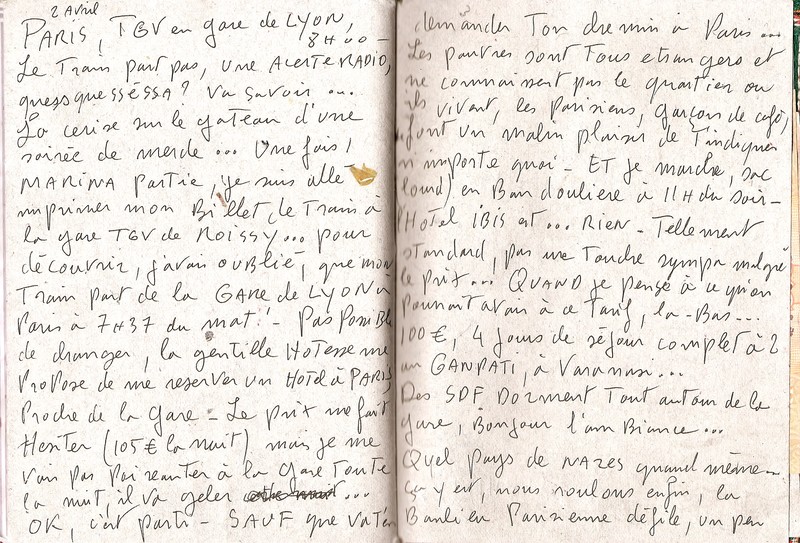 2 Avril
PARIS, TGV en gare de LYON,
8H00 -
Le Train part pas, une ALERTE RADIO,
quessquesséssa? Va savoir ...
La cerise sur le gateau d'une
soirée de merde ... Une fois,
MARINA partie, je suis allé
imprimer mon Billet de Train à
la gare TGV de ROISSY... pour
découvrir, j'avais OUBLIÉ, que mon
Train part de la GARE de LYON à
Paris à 7H37 du mat! - Pas Possible
de changer, la gentille Hotesse me
Propose de me reserver un Hotel à PARIS
Proche de la Gare - Le prix me fait
Hesiter (105€ la nuit) mais je me
vois pas Poireauter à la Gare Toute
la nuit, il va geler ...
OK, c'est parti - SAUF que va t'en
demander Ton chemin à Paris ...
Les pauvres sont Tous etrangers et
ne connaissent pas le quartier ou
ils vivent, les Parisiens, Garçons de café,
font un malin plaisir de T'indiquer
n'importe quoi - ET je marche, sac
lourd) en Bandouliere à 11H du soir -
l'HOTEL IBIS est ... RIEN - Tellement
standard, pas une Touche sympa malgré
le prix ... QUAND je pense à ce qu'on
pourrait avoir à ce Tarif, la-Bas ...
100€, 4 jours de séjour complet à 2
au GANPATI, à Varanasi ...
Des SDF DORMENT Tout autour de la
gare, Bonjour l'am Biance ...
Quel pays de NAZES quand même ...
ça y est, nous roulons enfin, la
Banlieu Parisienne défile, un peu